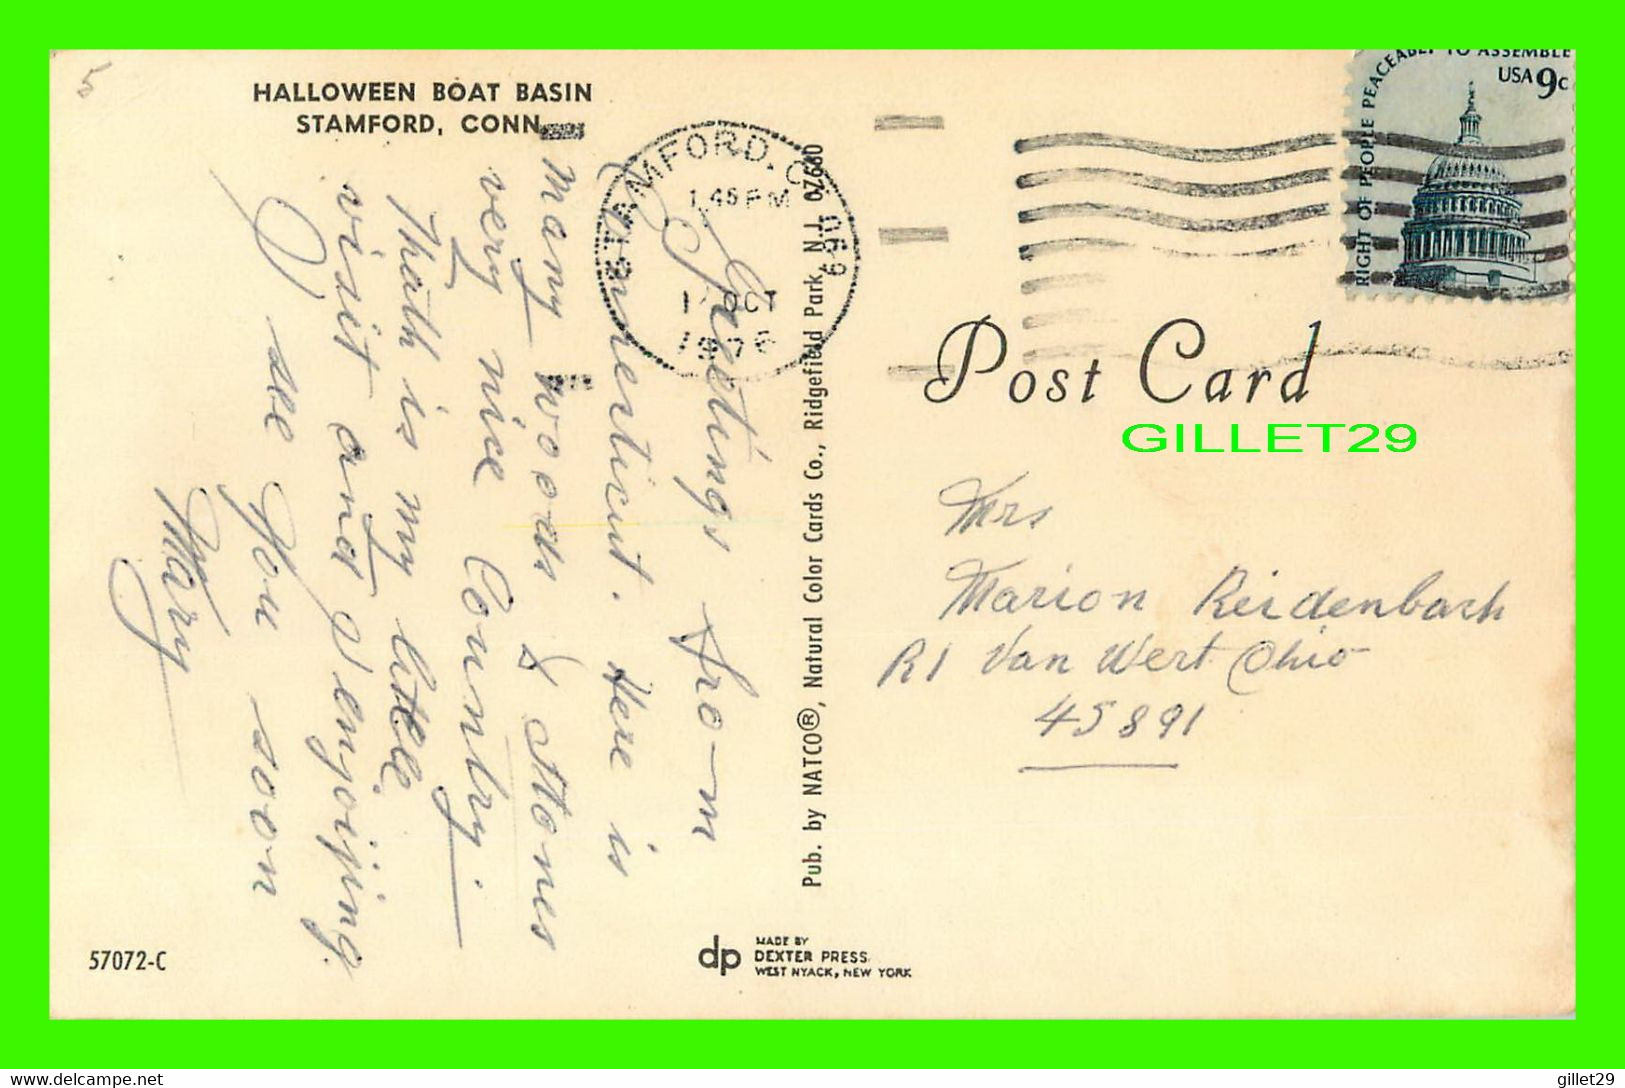 5
HALLOWEEN BOAT BASIN
STAMFORD, CONN.
Greetings from
Connenticut. Here is
many woods & Stones
very nice Country.
Thath is my little
visit and I enjoijing.
I see you soon
Mary
57072-C
STAMFORD, CT
1 45 PM
OCT
1976
069
Pub. by NATCO®, Natural Color Cards Co., Ridgefield Park, N.J. 07660
dp
MADE BY
DEXTER PRESS
WEST NYACK, NEW YORK
RIGHT OF PEOPLE PEACEABLY TO ASSEMBLE
USA 9c
Post Card
GILLET29
Mrs
Marion Reidenbach
R1 Van Wert Ohio
45891
www.delcampe.net
gillet29